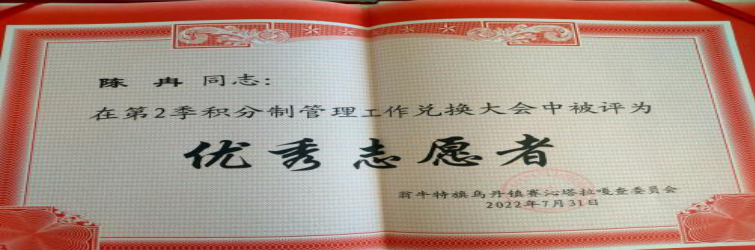 陈冉同志:
在第2季积分制管理工作兑换大会中被评为
优秀志愿者
翁牛特旗乌丹镇赛沁塔拉嘎查委员会
2022年7月31日